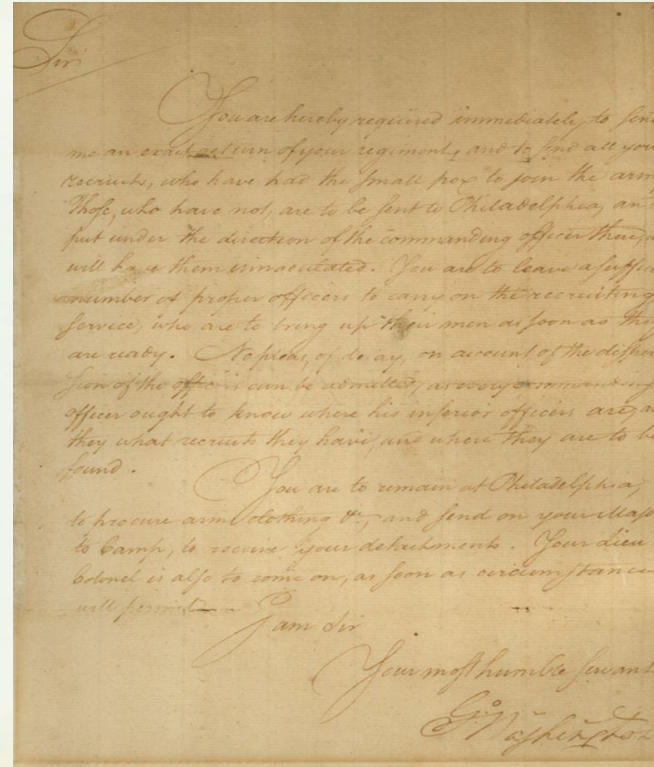 Sir
You are hereby required immediately to send
me an exact return of your regiment, and to send all your
recruits, who have had the small pox to join the arm
Those, who have not, are to be sent to Philadelphia, and
put under the direction of the commanding officer there, w
will have them innoculated. You are to leave a suffic
number of proper officers to carry on the recruiting
service, who are to bring up their men as soon as they
are ready. No pleas, of delay, on account of the disper
sion of the officers can be admitted, as every commanding
officer ought to know where his inferior officers are, an
they what recruits they have, and where they are to be
found.
You are to remain at Philadelphia,
to procure arms, clothing &c., and send on your Majo
to Camp, to receive your detachments. Your Lieu
Colonel is also to come on, as soon as circumstance
will permit
I am Sir
Your most humble servant
Go. Washington